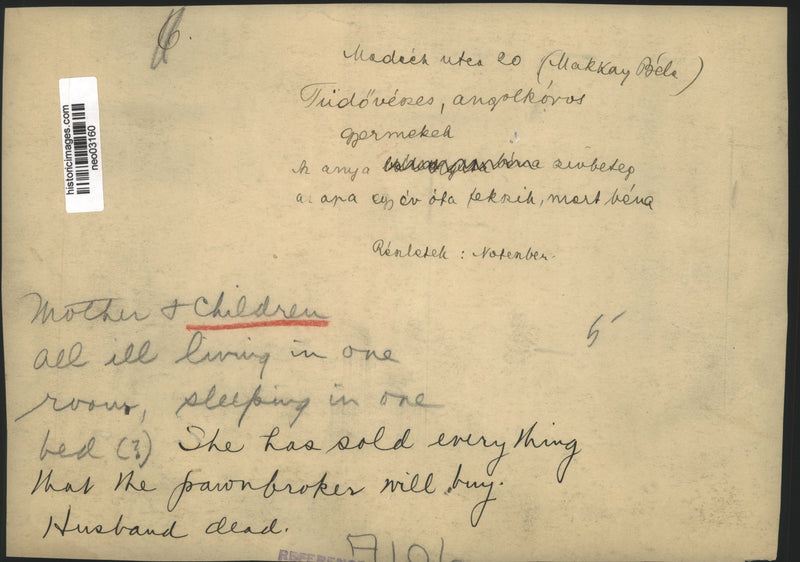 6.
Madách utca 20 (Makkay Béla)
Tüdővészes, angolkóros
gyermekek
Az anya szívbeteg
az apa egy év óta fekszik, mert béna
Részletek : Notenber.
historicimages.com
neo03160
Mother & Children
all ill living in one
room, sleeping in one
bed (?) She has sold everything
that the pawnbroker will buy.
Husband dead.
5
REFEREN